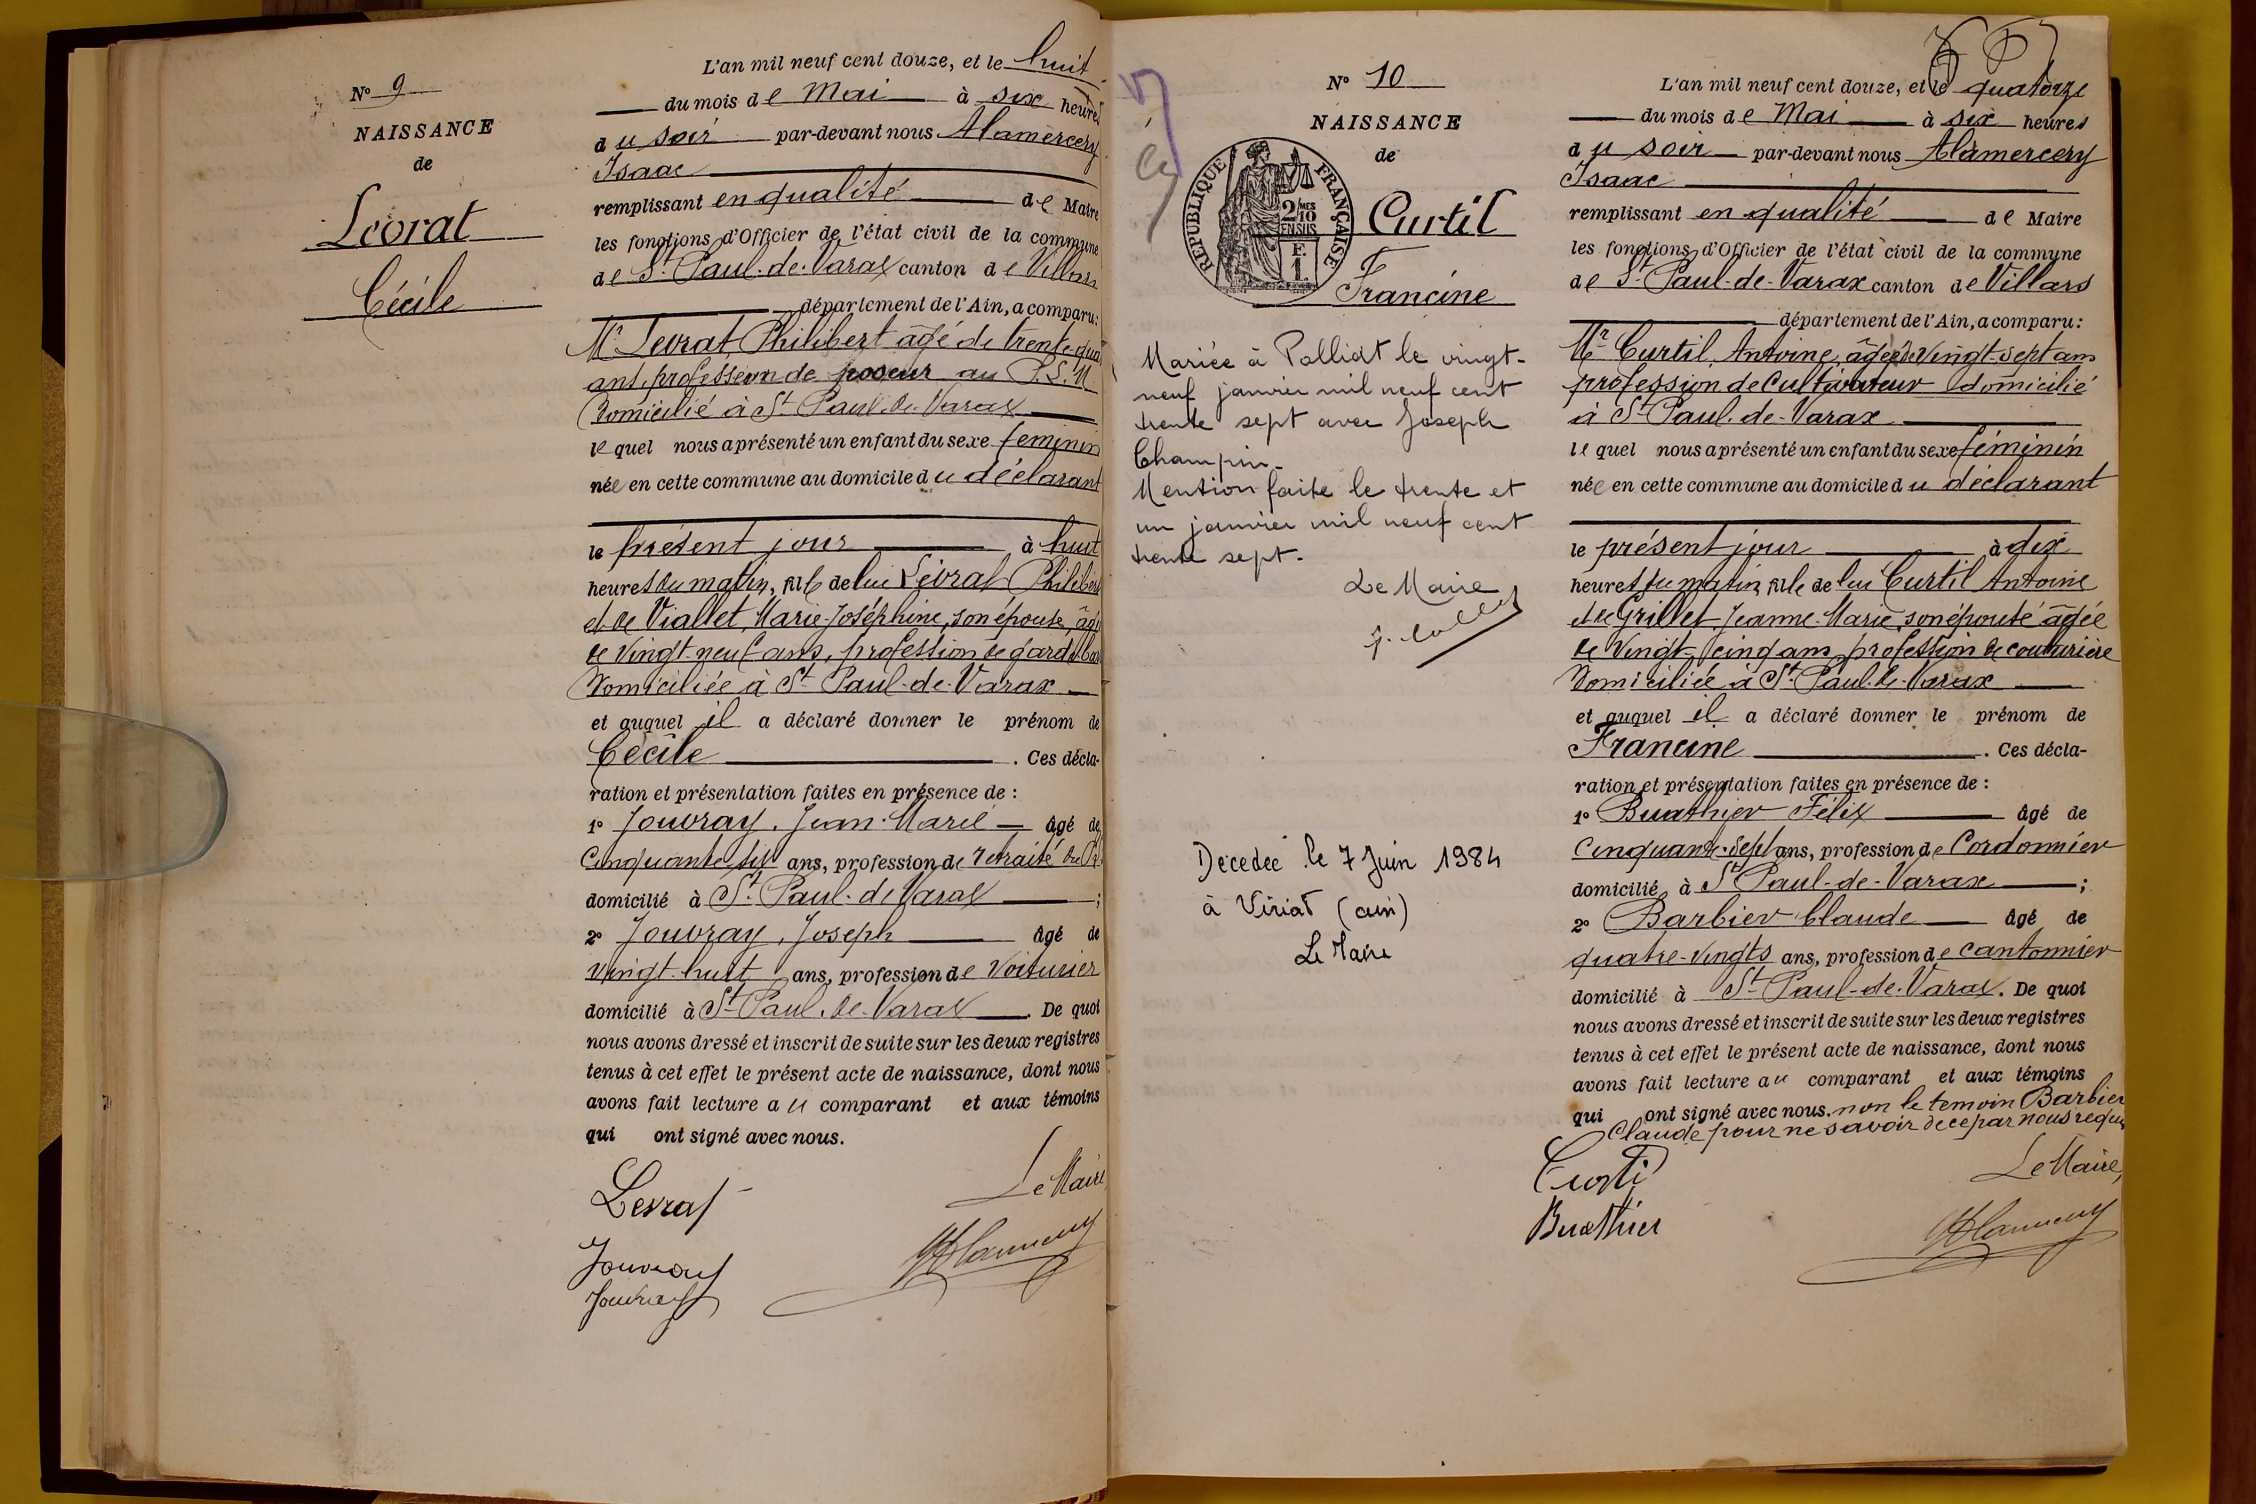 N° 9
NAISSANCE
de
Levrat
Cécile
L'an mil neuf cent douze, et le huit
du mois de Mai à six heures
du soir par-devant nous Alamercery
Isaac
remplissant en qualité de Maire
les fonctions d'Officier de l'état civil de la commune
de St Paul-de-Varax canton de Villars
département de l'Ain, a comparu:
Mr Levrat Philibert âgé de trente qua
ans, profession de poseur au P.L.M
domicilié à St Paul-de-Varax
lequel nous a présenté un enfant du sexe féminin
née en cette commune au domicile du déclarant
le présent jour à huit
heures du matin, fille de lui Levrat Philibert
et de Viallet, Marie-Joséphine, son épouse, âgé
de vingt-neuf ans, profession de garde bar
domiciliée à St Paul-de-Varax
et auquel il a déclaré donner le prénom de
Cécile. Ces décla-
ration et présentation faites en présence de :
1° Jouvray, Jean-Marie âgé de
cinquante six ans, profession de retraité du
domicilié à St Paul-de-Varax ;
2° Jouvray, Joseph âgé de
vingt-huit ans, profession de voiturier
domicilié à St Paul-de-Varax. De quoi
nous avons dressé et inscrit de suite sur les deux registres
tenus à cet effet le présent acte de naissance, dont nous
avons fait lecture au comparant et aux témoins
qui ont signé avec nous.
Levrat
Le Maire
Jouvray
Jouvray
N° 10
NAISSANCE
de
RÉPUBLIQUE FRANÇAISE
2/10
MES
EN SUS
F.
1.
Curtil
Francine
Mariée à Polliat le vingt-
neuf janvier mil neuf cent
trente sept avec Joseph
Champin.
Mention faite le trente et
un janvier mil neuf cent
trente sept.
Le Maire
Décédée le 7 Juin 1984
à Viriat (ain)
Le Maire
L'an mil neuf cent douze, et le quatorze
du mois de Mai à six heures
du soir par-devant nous Alamercery
Isaac
remplissant en qualité de Maire
les fonctions d'Officier de l'état civil de la commune
de St Paul-de-Varax canton de Villars
département de l'Ain, a comparu :
Mr Curtil, Antoine, âgé de vingt-sept ans
profession de Cultivateur domicilié
à St Paul-de-Varax
lequel nous a présenté un enfant du sexe féminin
née en cette commune au domicile du déclarant
le présent jour à dix
heures du matin, fille de lui Curtil Antoine
et de Grillet, Jeanne-Marie, son épouse âgée
de vingt-cinq ans profession de couturière
domiciliée à St Paul-de-Varax
et auquel il a déclaré donner le prénom de
Francine. Ces décla-
ration et présentation faites en présence de :
1° Buathier Félix âgé de
cinquante-sept ans, profession de Cordonnier
domicilié à St Paul-de-Varax ;
2° Barbier Claude âgé de
quatre-vingts ans, profession de cantonnier
domicilié à St Paul-de-Varax. De quoi
nous avons dressé et inscrit de suite sur les deux registres
tenus à cet effet le présent acte de naissance, dont nous
avons fait lecture au comparant et aux témoins
qui ont signé avec nous. non le temoin Barbier
Claude pour ne savoir de ce par nous requis
Curtil
Le Maire,
Buathier